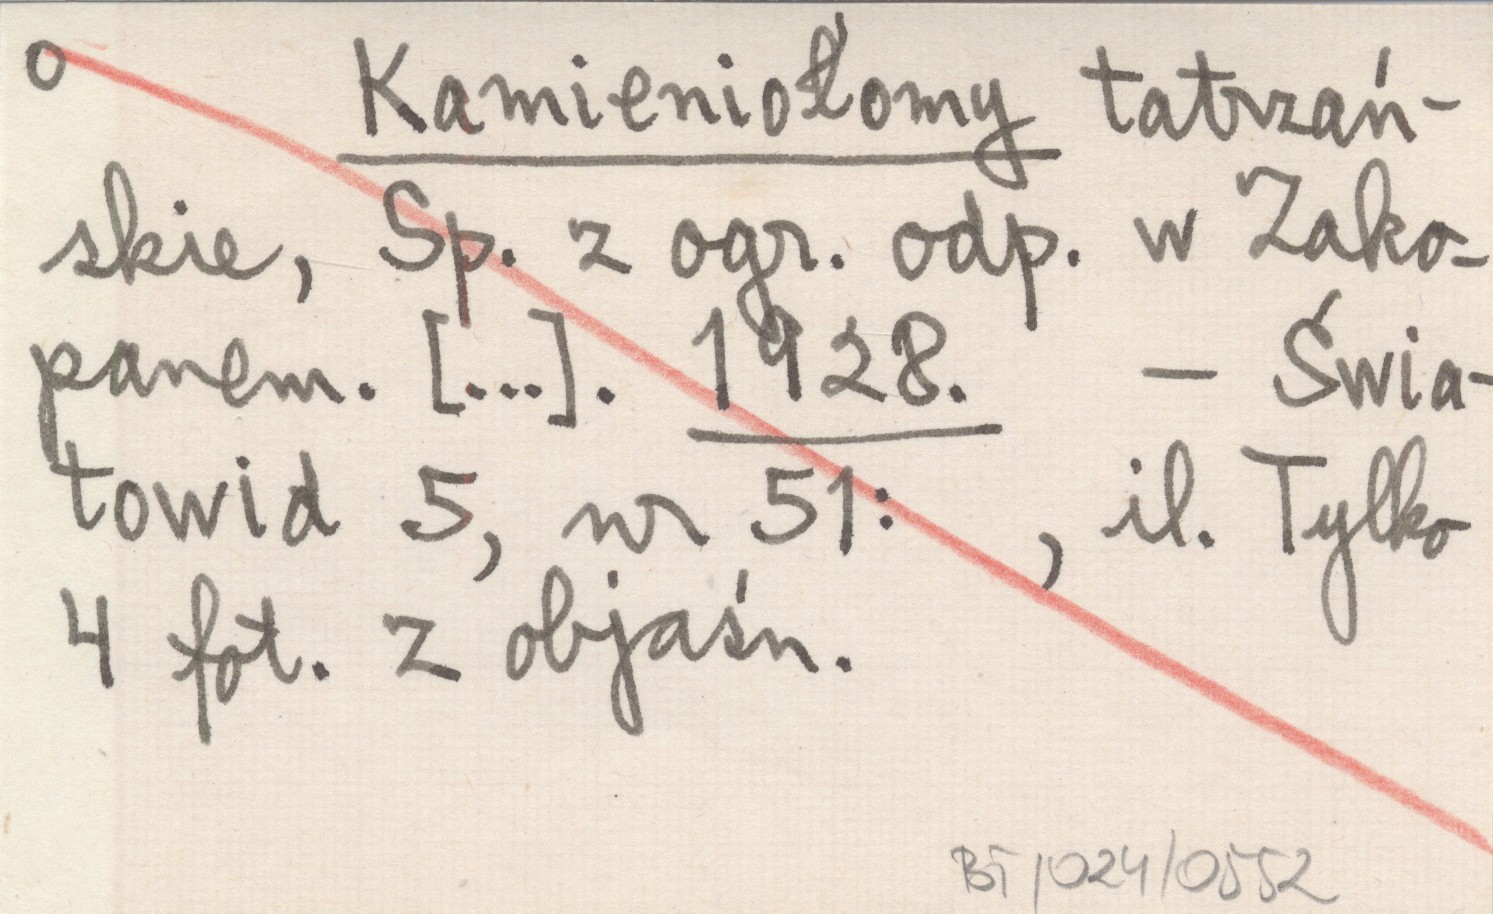 o Kamieniołomy tatrzań-
skie, Sp. z ogr. odp. w Zako-
panem. [...]. 1928. — Świa-
towid 5, nr 51: , il. Tylko
4 fot. z objaśn.
BT/024/0552